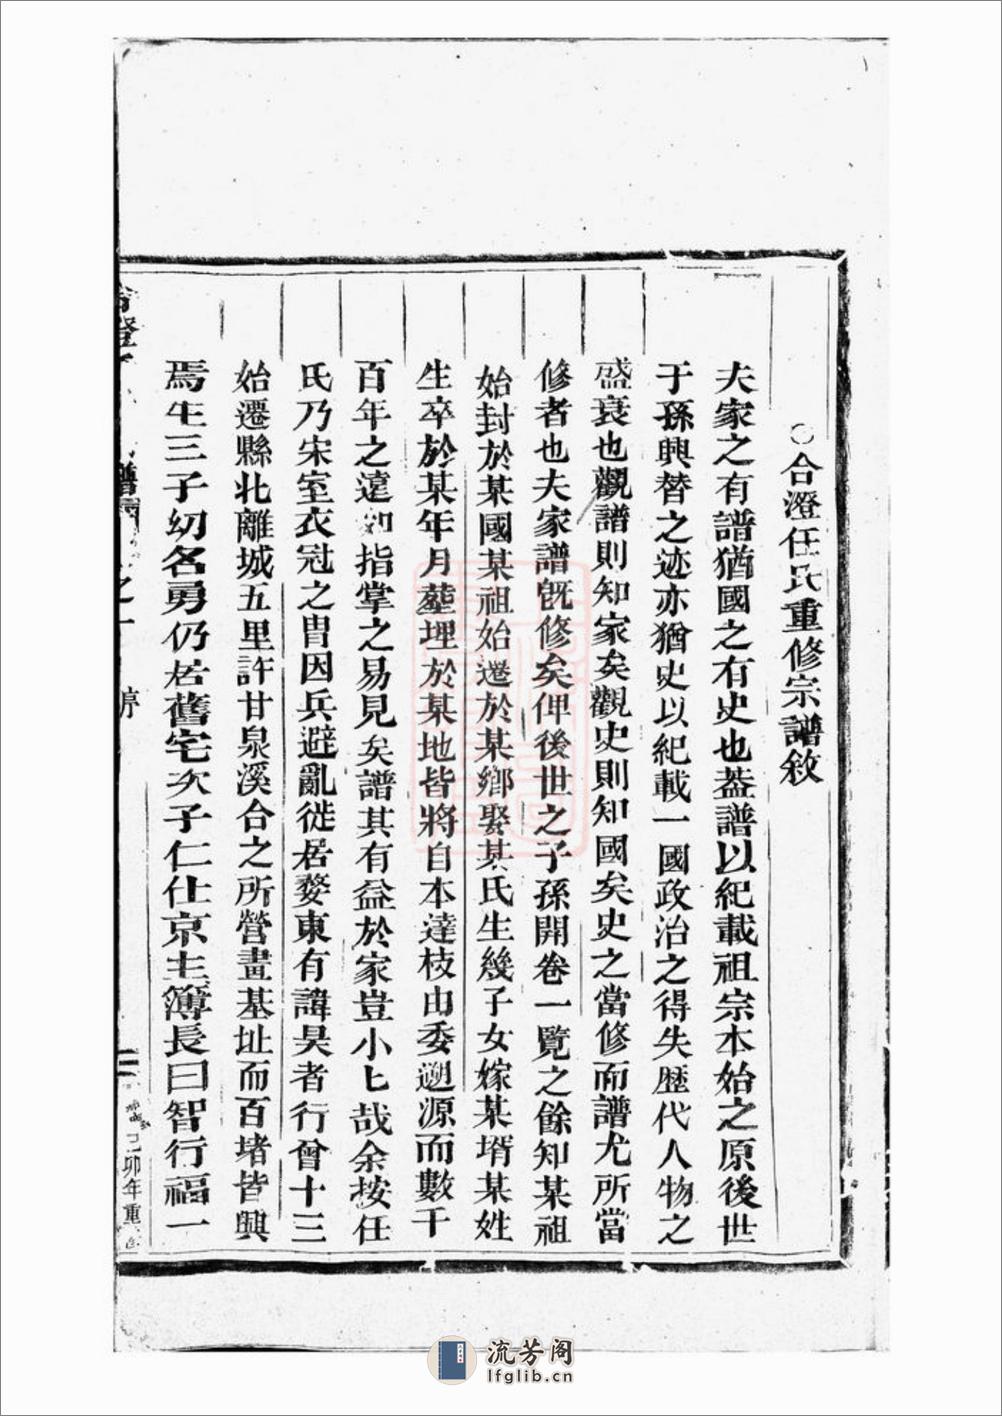 ○合澄任氏重修宗譜敘
夫家之有譜猶國之有史也葢譜以紀載祖宗本始之原後世
子孫興替之迹亦猶史以紀載一國政治之得失歷代人物之
盛衰也觀譜則知家矣觀史則知國矣史之當修而譜尤所當
修者也夫家譜旣修矣俾後世之子孫開卷一覽之餘知某祖
始封於某國某祖始遷於某鄉娶某氏生幾子女嫁某壻某姓
生卒於某年月塟埋於某地皆將自本達枝由委遡源而數千
百年之遠如指掌之易見矣譜其有益於家豈小匕哉余按任
氏乃宋室衣冠之胄因兵避亂徙居婺東有諱昊者行曾十三
始遷縣北離城五里許甘泉溪合之所營畫基址而百堵皆興
焉生三子幼名勇仍居舊宅次子仁仕京主簿長曰智行福一
合澄
譜
之一
序
二
己卯年重
流芳阁
lfglib.cn